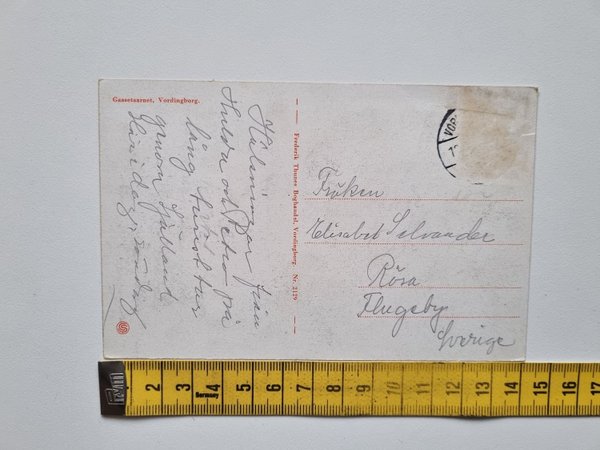 Gaasetaarnet, Vordingborg.
Hälsningar från
Hulda och Petra på
lång turisttur
genom Själland.
Här idag söndag
Frederik Thunes Boghandel, Vordingborg. Nr. 2129
VOR
Fröken
Elisabet Selvander
Rösa
Flugeby
Sverige
2 3 4 5 6 7 8 9 10 11 12 13 14 15 16 17
Germany